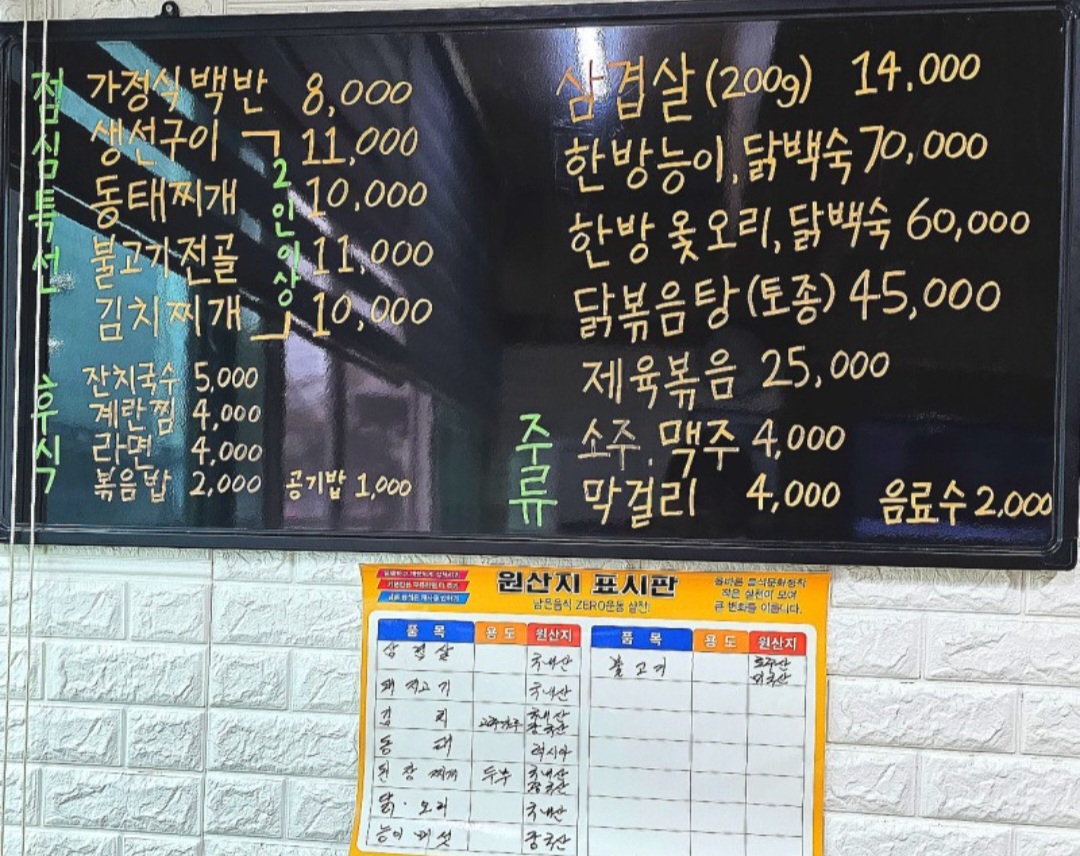 점심특선
가정식백반 8,000
생선구이 11,000
동태찌개 10,000
불고기전골 11,000
김치찌개 10,000
2인이상
후식
잔치국수 5,000
계란찜 4,000
라면 4,000
볶음밥 2,000 공기밥 1,000
삼겹살(200g) 14.000
한방능이,닭백숙 70,000
한방 옻오리,닭백숙 60,000
닭볶음탕(토종) 45,000
제육볶음 25,000
주류
소주.맥주 4,000
막걸리 4,000 음료수 2,000
원산지 표시판
남은음식 ZERO운동 실천!
올바른 음식문화정착
작은 실천이 모여
큰 변화를 이룹니다.
품목 용도 원산지 품목 용도 원산지
삼겹살 국내산 불고기 호주산 미국산
돼지고기 국내산
김치 국내산 중국산
동태 러시아
된장찌개 두부 국내산 중국산
닭·오리 국내산
능이버섯 중국산